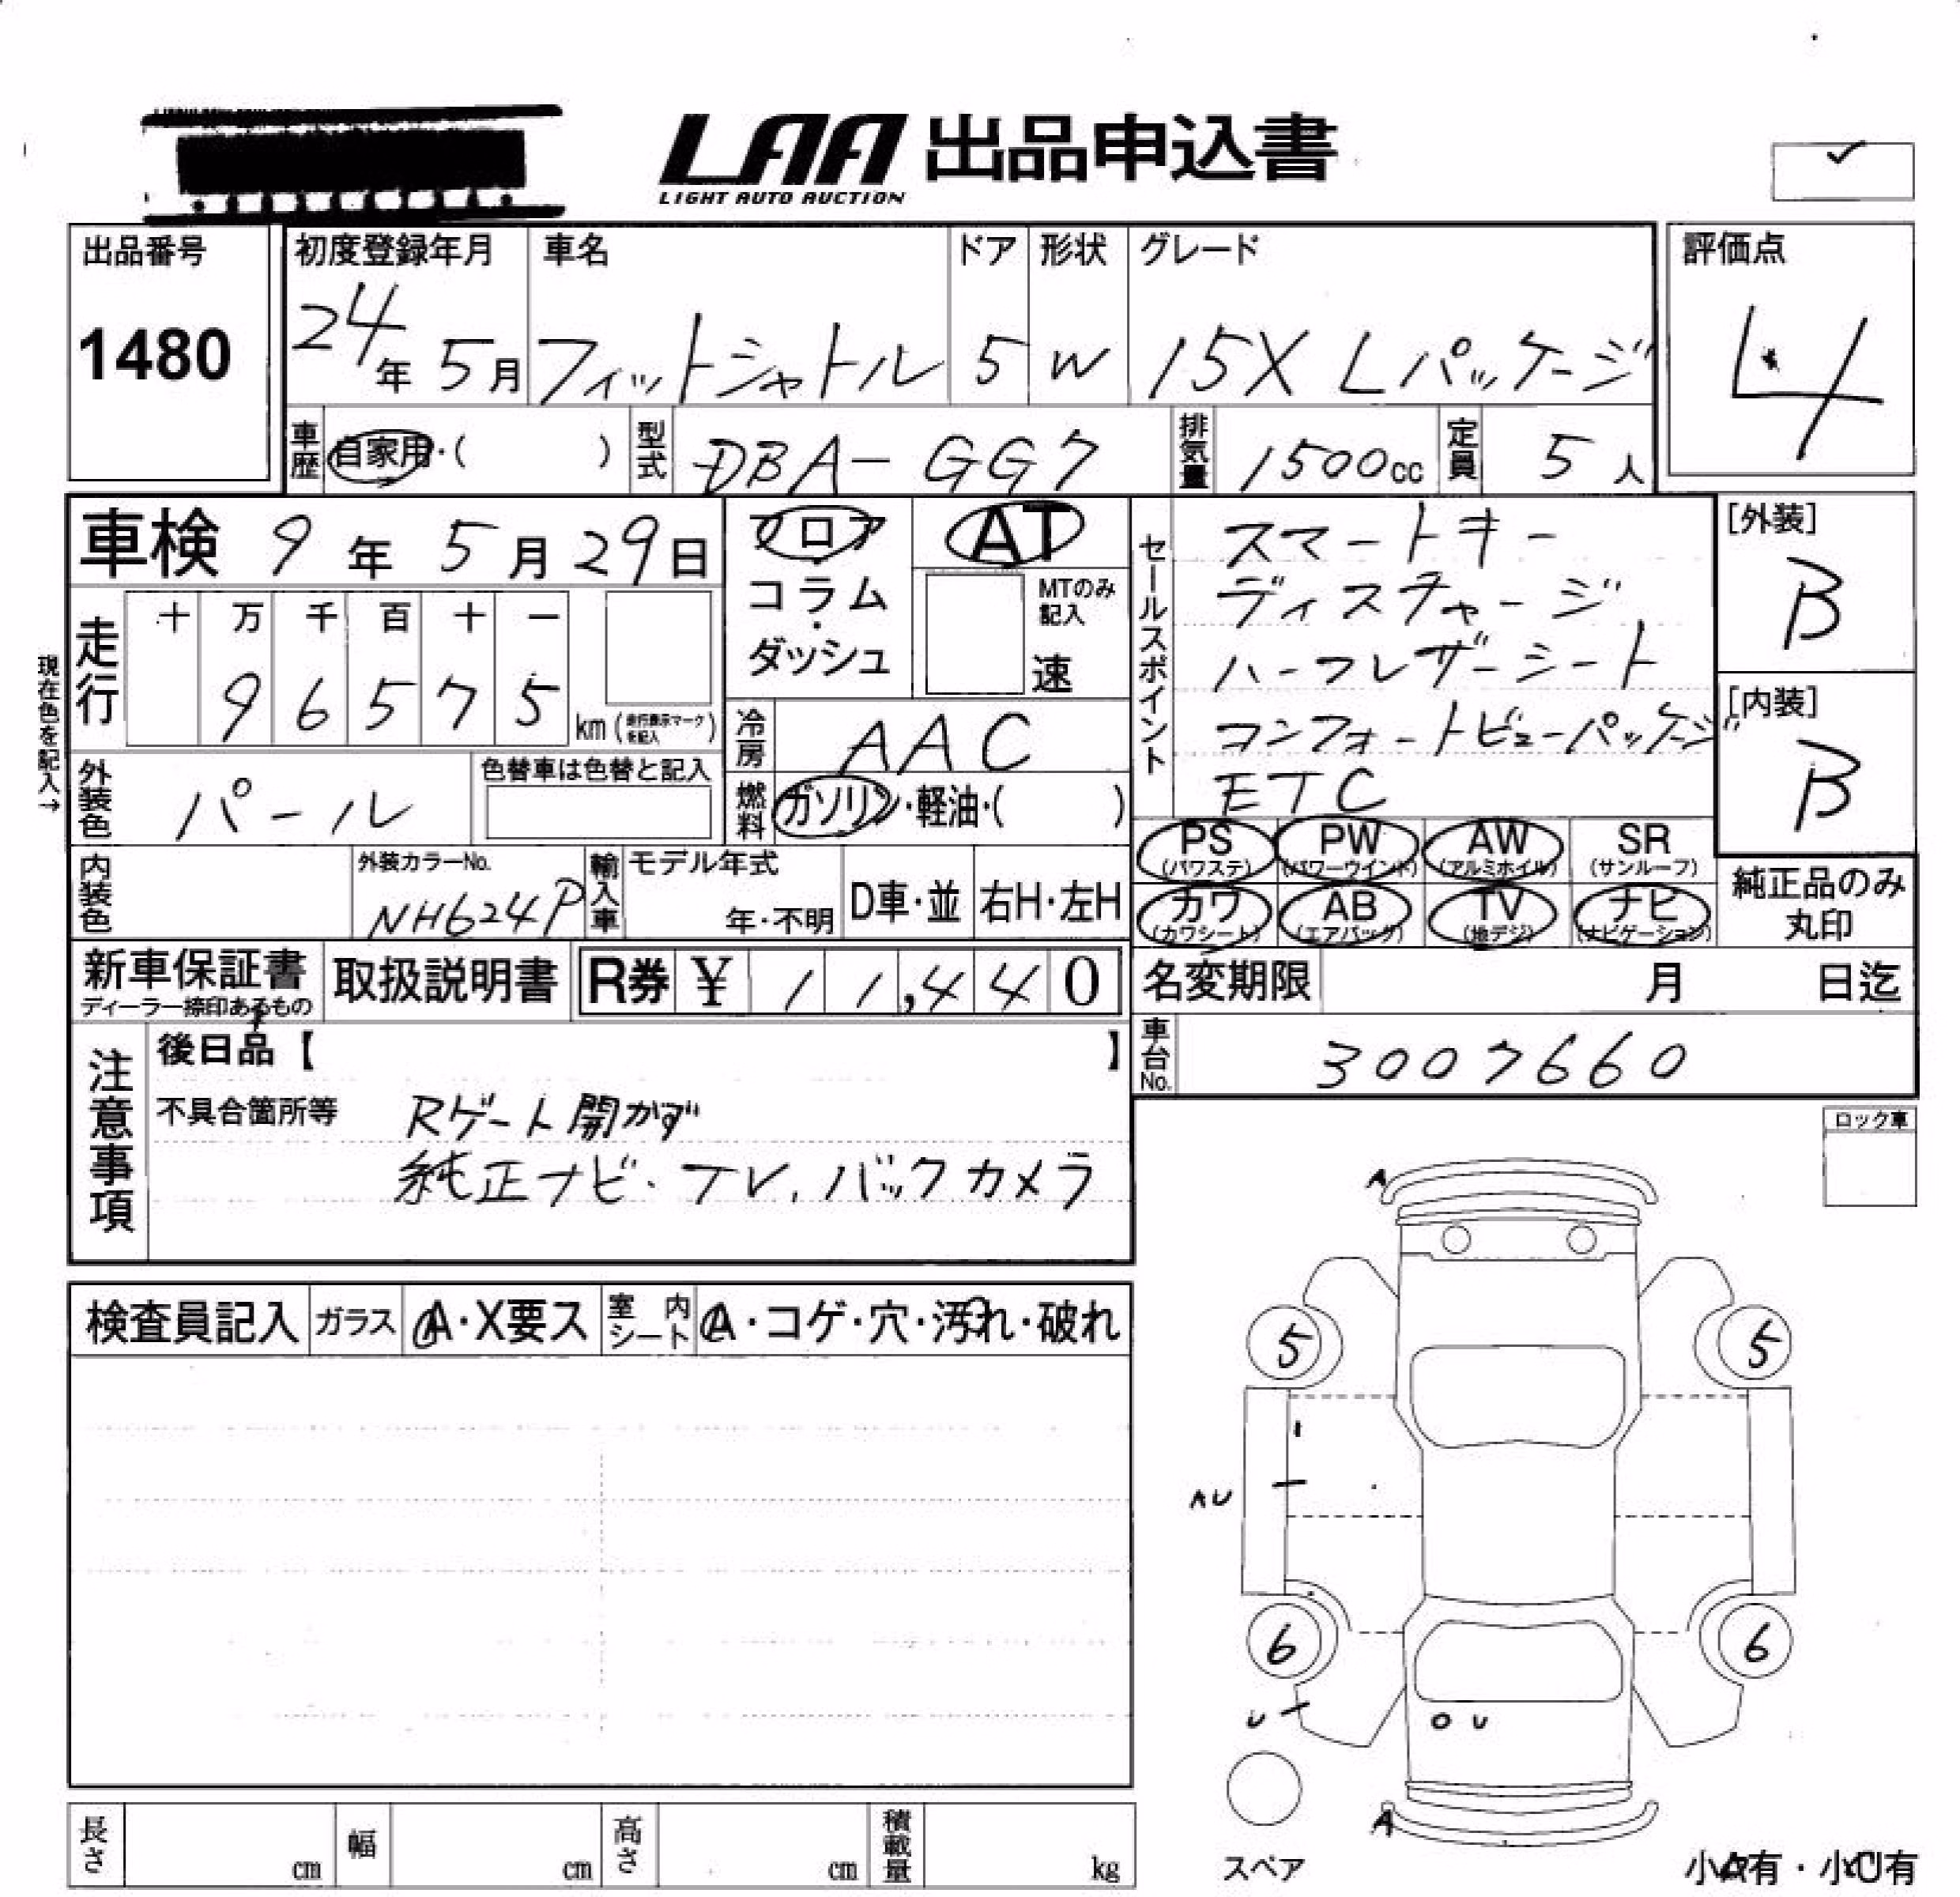 LAA 出品申込書
LIGHT AUTO AUCTION
出品番号
1480
初度登録年月
24年 5月
車名
フィットシャトル
ドア
5
形状
W
グレード
15X Lパッケージ
評価点
4
車歴 自家用・( )
型式 DBA-GG7
排気量 1500cc
定員 5人
車検 9年 5月 29日
走行
十 万 千 百 十 一
9 6 5 7 5 km (走行表示マークを記入)
現在色を記入→
外装色 パール
色替車は色替と記入
内装色
外装カラーNo.
NH624P
輸入車
モデル年式
年・不明
D車・並
右H・左H
フロア・コラム・ダッシュ
AT
MTのみ記入
速
冷房 AAC
燃料 ガソリン・軽油・( )
セールスポイント
スマートキー
ディスチャージ
ハーフレザーシート
コンフォートビューパッケージ
ETC
[外装]
B
[内装]
B
PS (パワステ)
PW (パワーウインド)
AW (アルミホイル)
SR (サンルーフ)
カワ (カワシート)
AB (エアバッグ)
TV (地デジ)
ナビ (ナビゲーション)
純正品のみ
丸印
新車保証書
ディーラー捺印あるもの
取扱説明書
R券 ¥ 11,440
名変期限 月 日迄
車台No. 3007660
注意事項
後日品【 】
不具合箇所等 Rゲート開かず
純正ナビ・TV、バックカメラ
ロック車
検査員記入
ガラス A・X要ス
室内シート A・コゲ・穴・汚れ・破れ
A
5 5
AU
6 6
U
U
A
スペア
小A有・小U有
長さ cm
幅 cm
高さ cm
積載量 kg